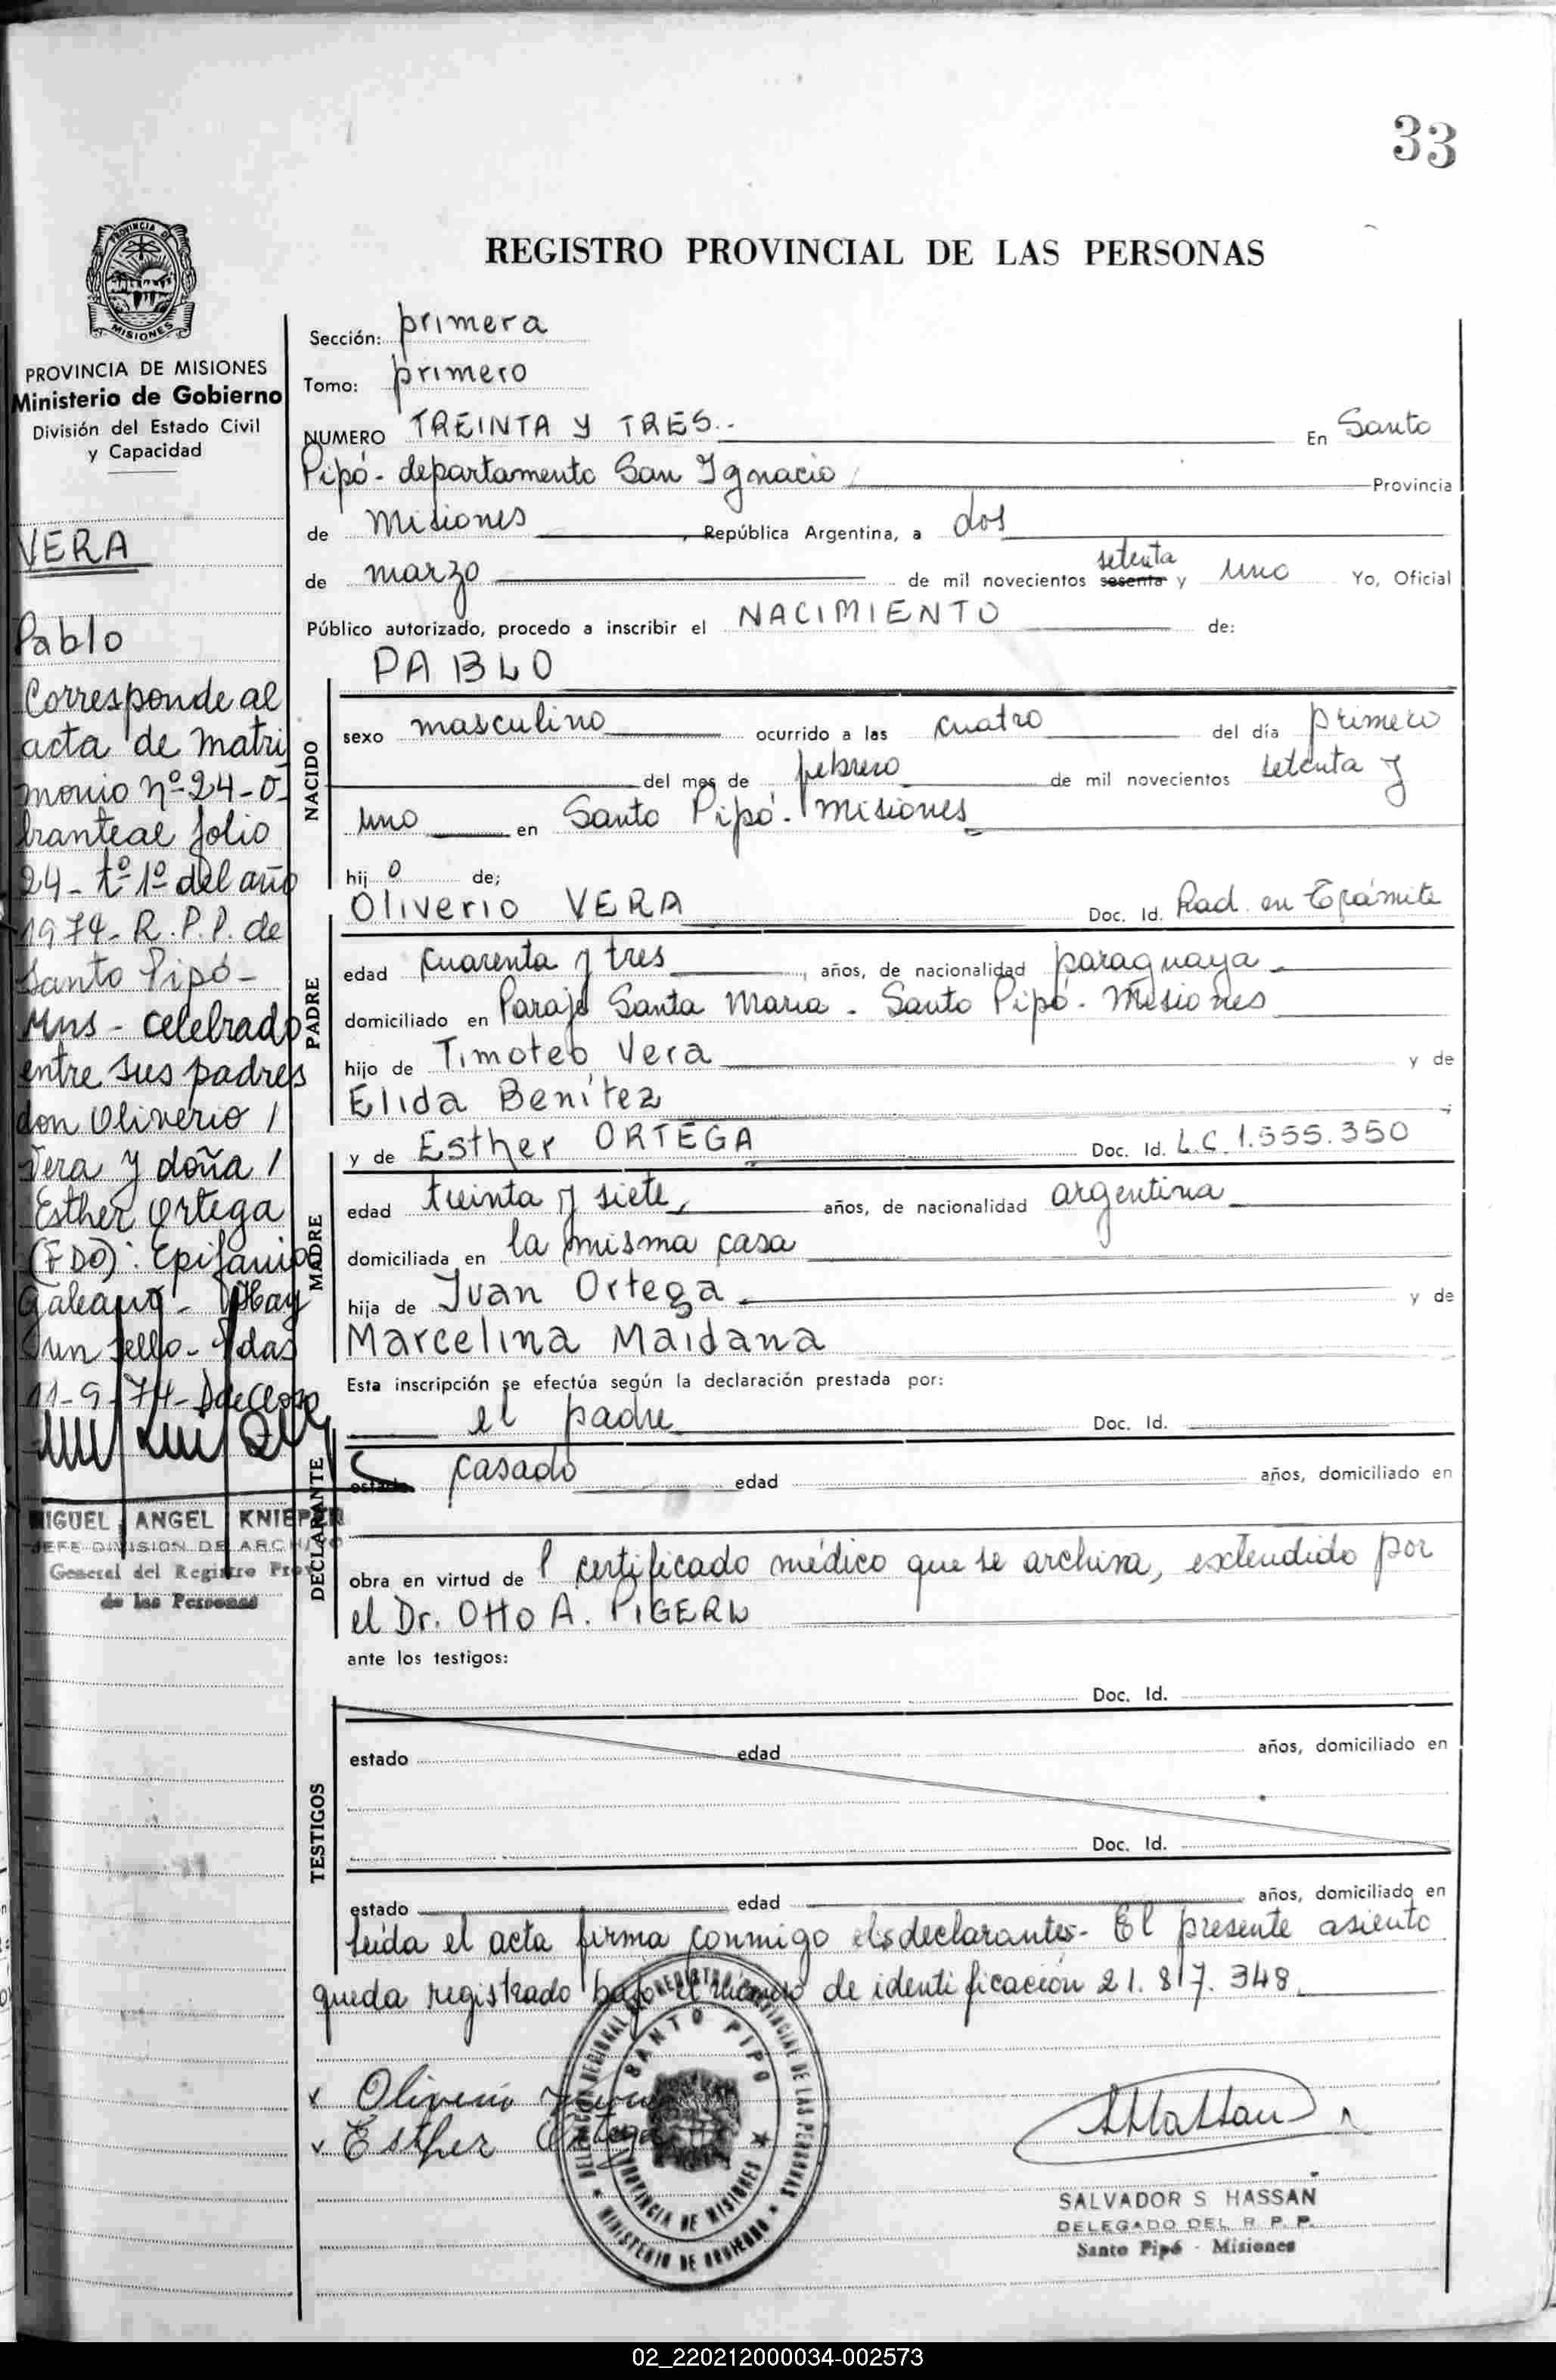 33
REGISTRO PROVINCIAL DE LAS PERSONAS
PROVINCIA DE MISIONES
PROVINCIA DE MISIONES
Ministerio de Gobierno
División del Estado Civil
y Capacidad
VERA
Pablo
Corresponde al
acta de matri
monio nº 24 - o-
brante al folio
24 - tº 1º del año
1974 - R. P. P. de
Santo Pipó -
Mns - celebrado
entre sus padres
don Oliverio /
Vera y doña /
Esther Ortega
(FDO): Epifanio
Galeano - Hay
un sello -
11-9-74 -
MIGUEL ANGEL KNIEPER
JEFE DIVISION DE ARCHIVO
General del Registro Prov
de las Personas
Sección: primera
Tomo: primero
NUMERO TREINTA Y TRES.- En Santo
Pipó - departamento San Ignacio Provincia
de Misiones , República Argentina, a dos
setenta
de marzo de mil novecientos sesenta y uno Yo, Oficial
Público autorizado, procedo a inscribir el NACIMIENTO de:
PABLO
NACIDO
sexo masculino ocurrido a las cuatro del día primero
del mes de febrero de mil novecientos setenta y
uno en Santo Pipó - Misiones
hijo de;
Oliverio VERA Doc. Id. Rad. en Trámite
PADRE
edad cuarenta y tres , años, de nacionalidad paraguaya
domiciliado en Paraje Santa Maria - Santo Pipó - Misiones
hijo de Timoteo Vera y de
Elida Benítez ;
y de Esther ORTEGA Doc. Id. L.C. 1.555.350
MADRE
edad treinta y siete, años, de nacionalidad argentina
domiciliada en la misma casa
hija de Juan Ortega y de
Marcelina Maidana
Esta inscripción se efectúa según la declaración prestada por:
el padre Doc. Id.
DECLARANTE
estado casado edad años, domiciliado en
obra en virtud de l certificado médico que se archiva, extendido por
el Dr. Otto A. PIGERL
ante los testigos:
TESTIGOS
Doc. Id.
estado edad años, domiciliado en
Doc. Id.
estado edad años, domiciliado en
Leída el acta firma conmigo els declarantes - El presente asiento
queda registrado bajo el número de identificación 21.817.348
Oliverio Vera
Esther Ortega
DELEGACION REGIONAL DEL REGISTRO PROVINCIAL DE LAS PERSONAS
SANTO PIPO
PROVINCIA DE MISIONES
MINISTERIO DE GOBIERNO
SALVADOR S HASSAN
DELEGADO DEL R. P. P.
Santo Pipó - Misiones
02_220212000034-002573